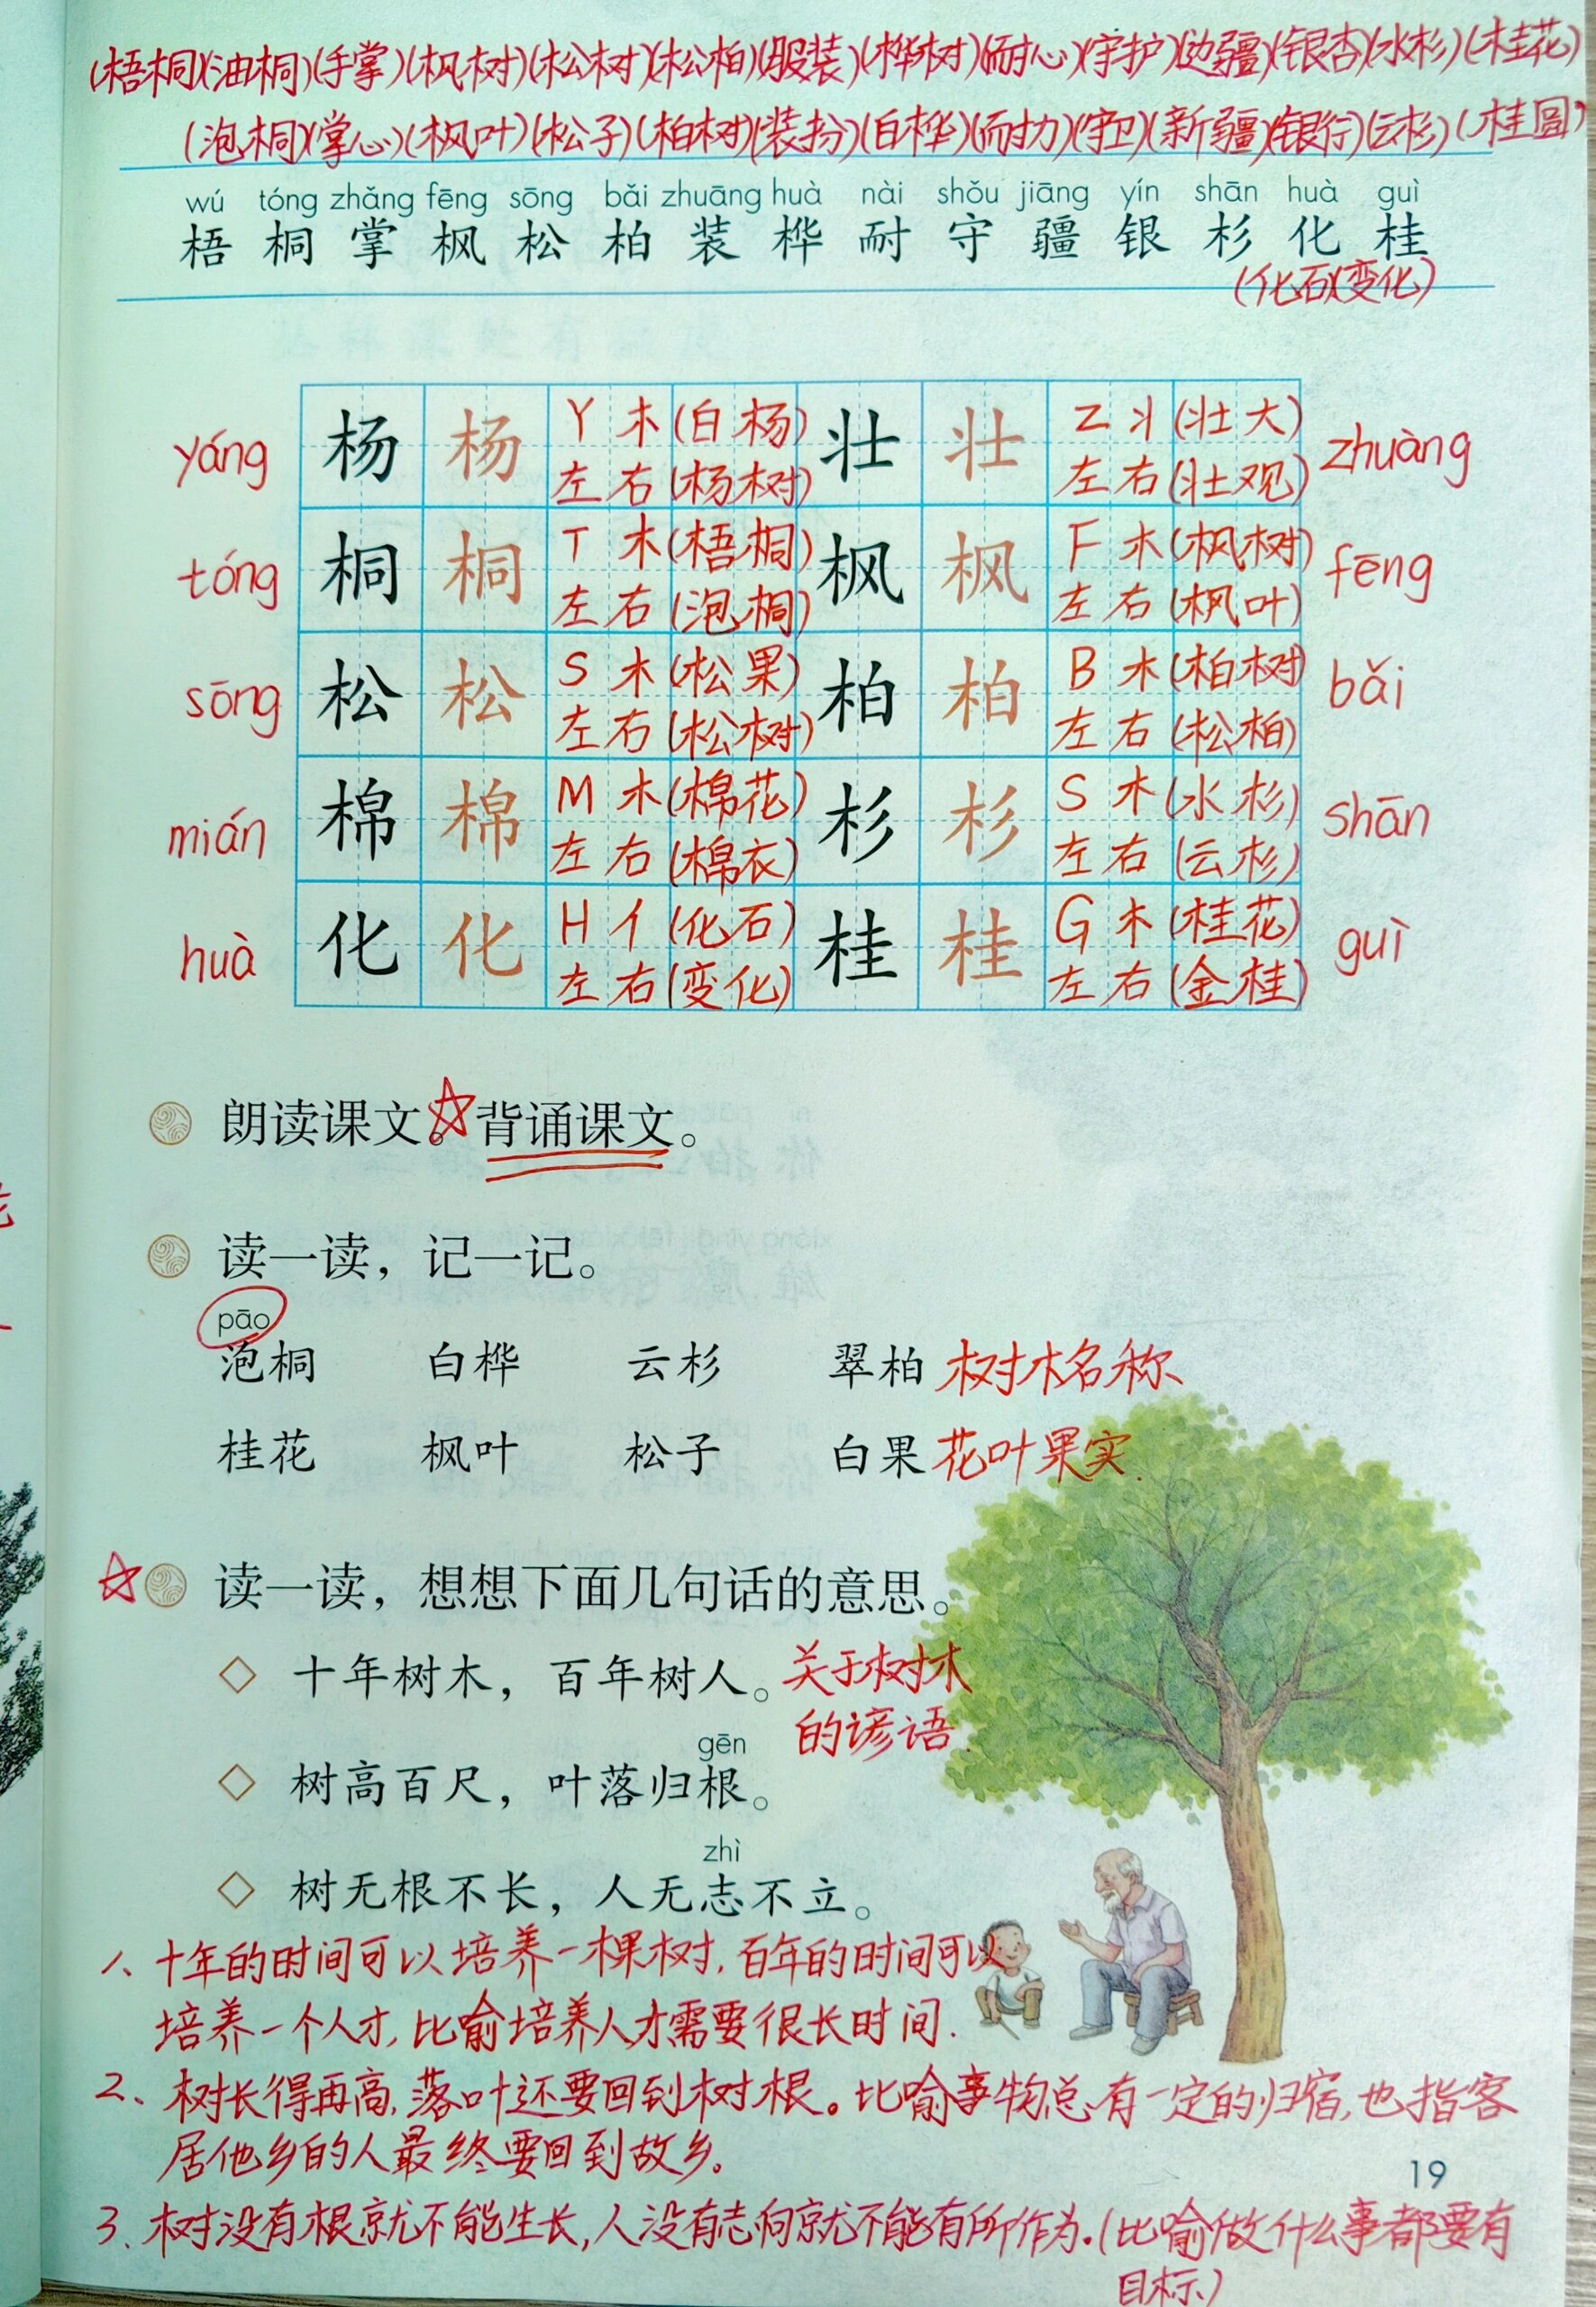 (梧桐)(油桐)(手掌)(枫树)(松树)(松柏)(服装)(桦树)(耐心)(守护)(边疆)(银杏)(水杉)(桂花)
(泡桐)(掌心)(枫叶)(松子)(柏树)(装扮)(白桦)(耐力)(守卫)(新疆)(银行)(云杉)(桂圆)
wú tóng zhǎng fēng sōng bǎi zhuāng huà nài shǒu jiāng yín shān huà guì
梧 桐 掌 枫 松 柏 装 桦 耐 守 疆 银 杉 化 桂
(化石)(变化)
yáng 杨 杨 Y 木 (白杨) 壮 壮 Z 丬 (壮大) zhuàng
左右 (杨树) 左右 (壮观)
tóng 桐 桐 T 木 (梧桐) 枫 枫 F 木 (枫树) fēng
左右 (泡桐) 左右 (枫叶)
sōng 松 松 S 木 (松果) 柏 柏 B 木 (柏树) bǎi
左右 (松树) 左右 (松柏)
mián 棉 棉 M 木 (棉花) 杉 杉 S 木 (水杉) shān
左右 (棉衣) 左右 (云杉)
huà 化 化 H 亻 (化石) 桂 桂 G 木 (桂花) guì
左右 (变化) 左右 (金桂)
朗读课文。背诵课文。
读一读，记一记。
pāo
泡桐 白桦 云杉 翠柏 树木名称
桂花 枫叶 松子 白果 花叶果实
读一读，想想下面几句话的意思。
十年树木，百年树人。关于树木
的谚语
gēn
树高百尺，叶落归根。
zhì
树无根不长，人无志不立。
1、十年的时间可以培养一棵树,百年的时间可以
培养一个人才,比喻培养人才需要很长时间.
2、树长得再高,落叶还要回到树根。比喻事物总有一定的归宿,也指客
居他乡的人最终要回到故乡。
19
3、树没有根就不能生长,人没有志向就不能有所作为.(比喻做什么事都要有
目标)